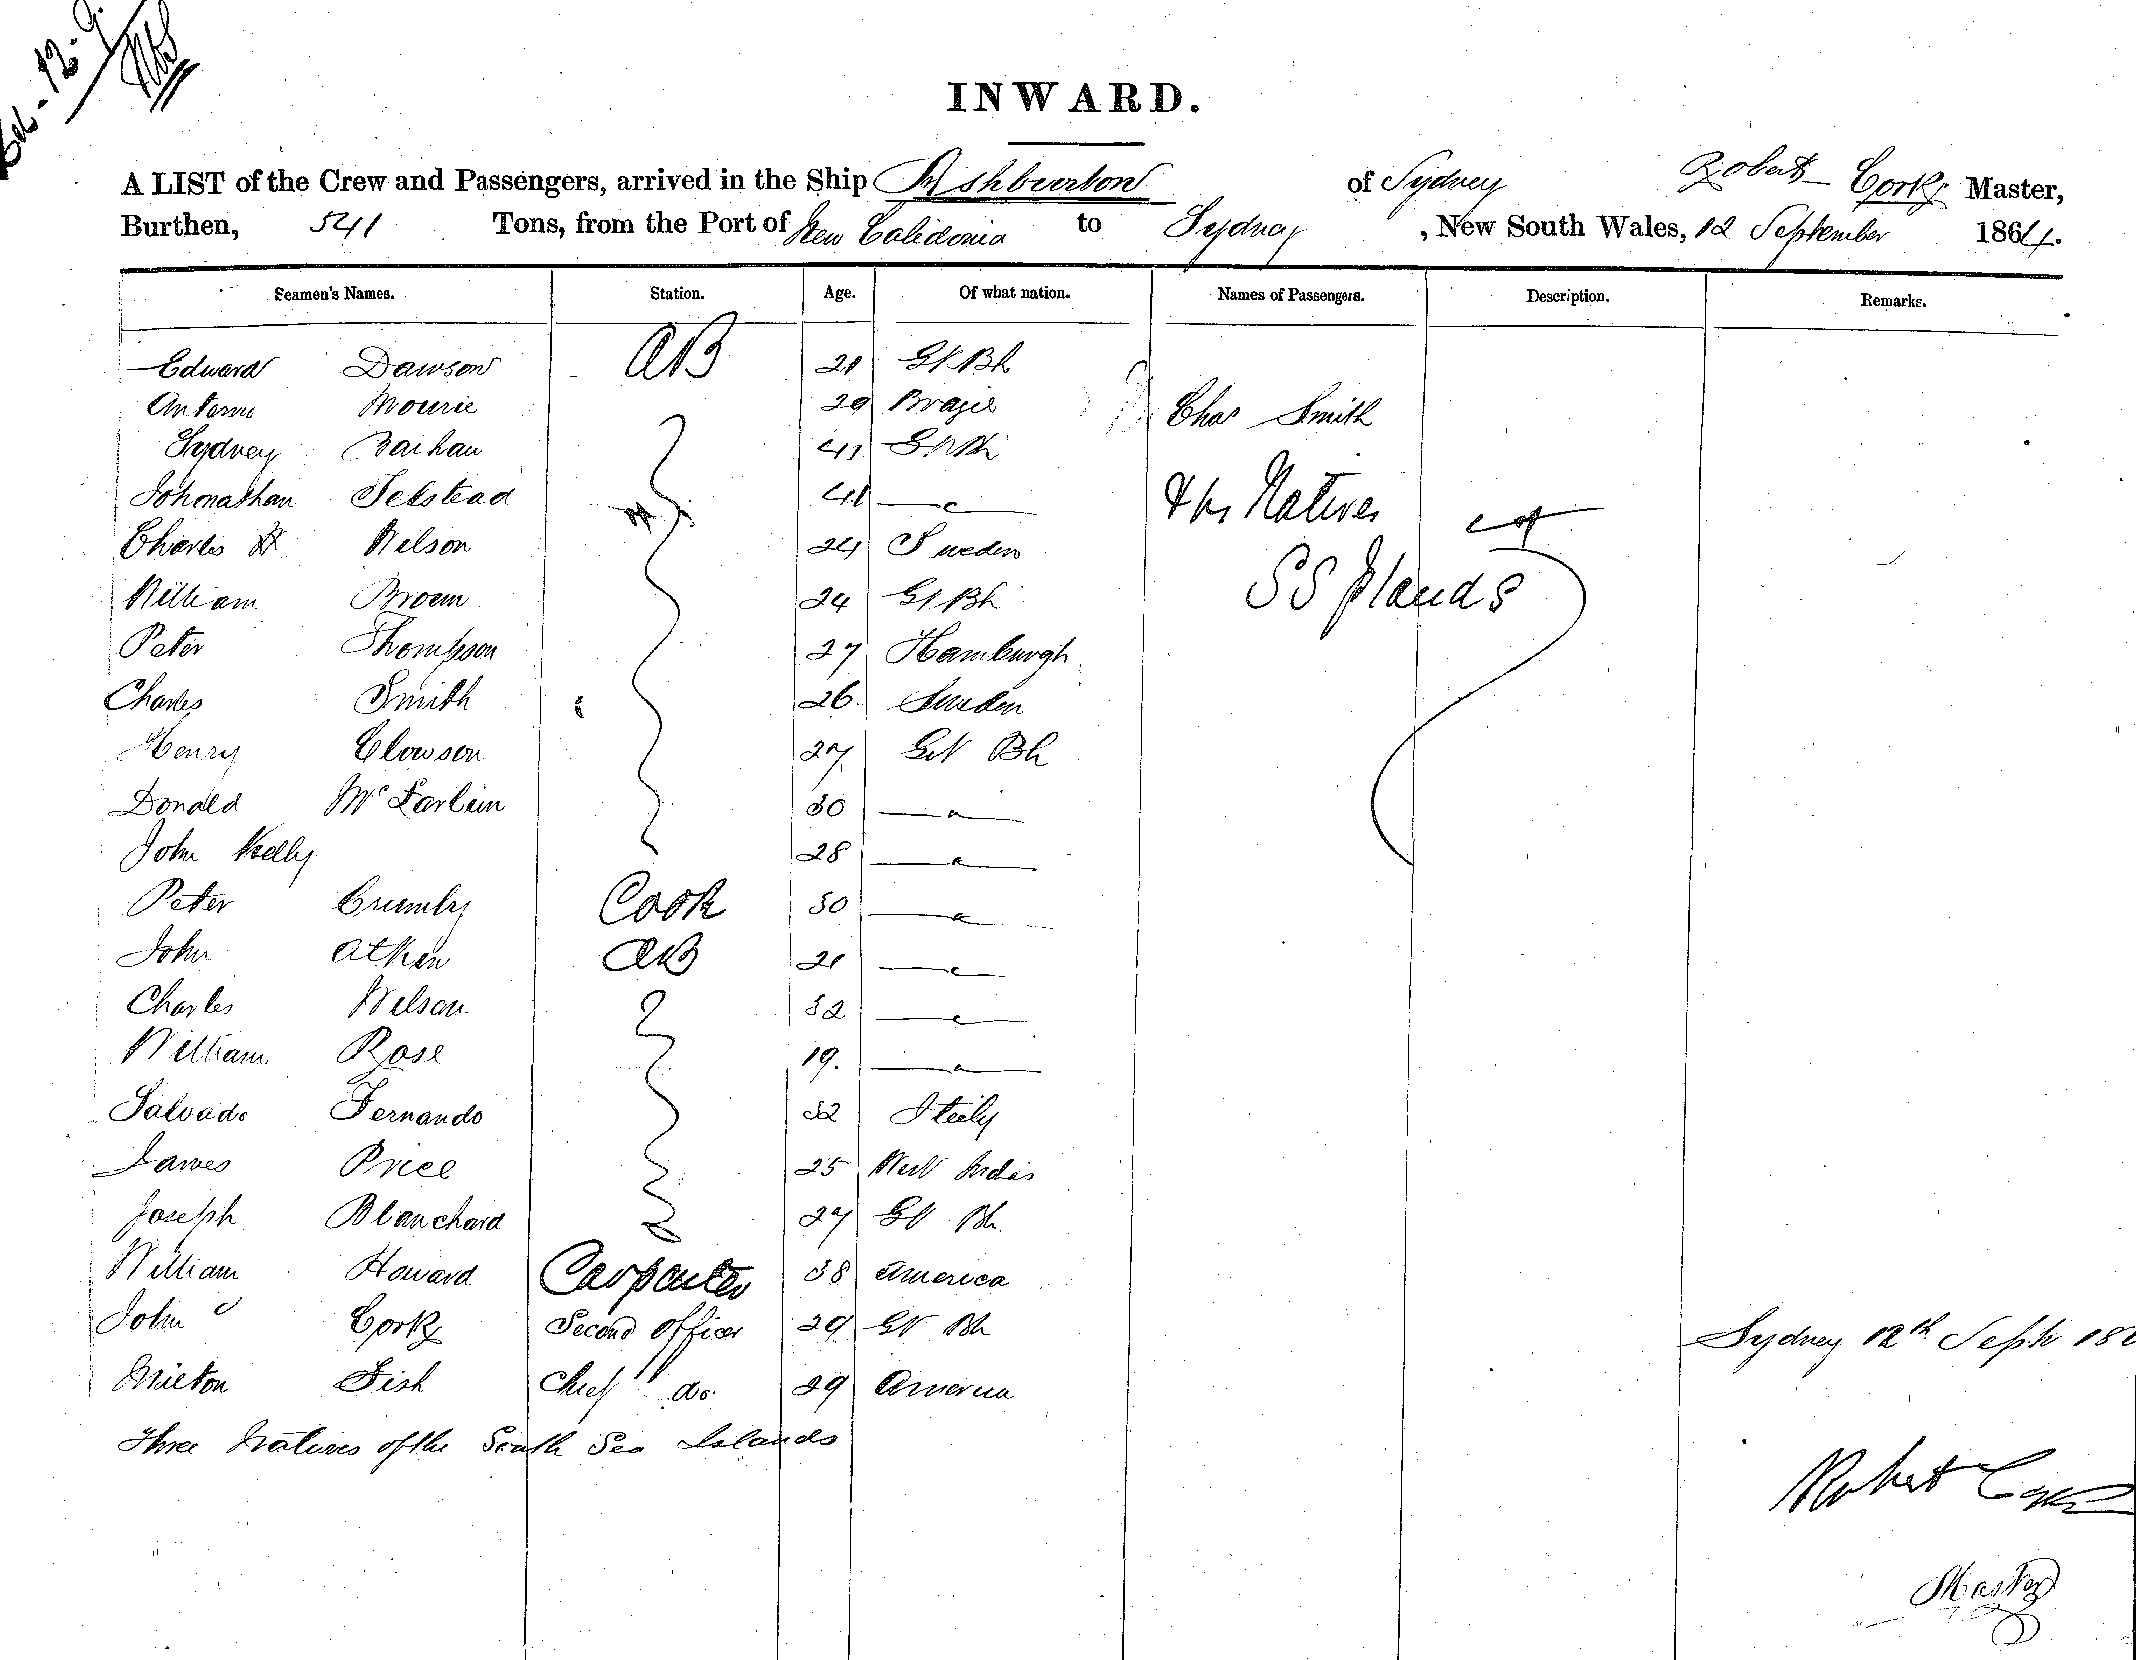 12.9.
INWARD.
A LIST of the Crew and Passengers, arrived in the Ship Ashburton of Sydney Robert Corky Master,
Burthen, 541 Tons, from the Port of New Calidonia to Sydney, New South Wales, 12 September 1864.
Seamen's Names. Station. Age. Of what nation. Names of Passengers. Description. Remarks.
Edward Dawson AB 21 Gt Bh
Mourie 29 Brazil Chas Smith
Sydney 41 Gt Bh
Johonathan Telstead 41 & hs Natives of
Charles Nelson 24 Sweden
William Brown 24 Gt Bh SS Islands
Peter Thompson 27 Hamburgh
Charles Smith 26 Sweden
Henry Clowson 27 Gt Bh
Donald Mc 30
John Kelly 28
Peter Crumby Cook 30
John Atken AB 21
Charles Wilson 32
William Rose 19.
Salvado Fernando 32 Iteily
James Price 25 West Indis
Joseph Blanchard 27 Gt Bh
William Howard Carpenter 38 America
John Corky Second officer 29 Gt Bh Sydney 12th Sept 186
Milton Fish Chief do 29 America
Three Natives of the South Sea Islands
Robert Corky
Master